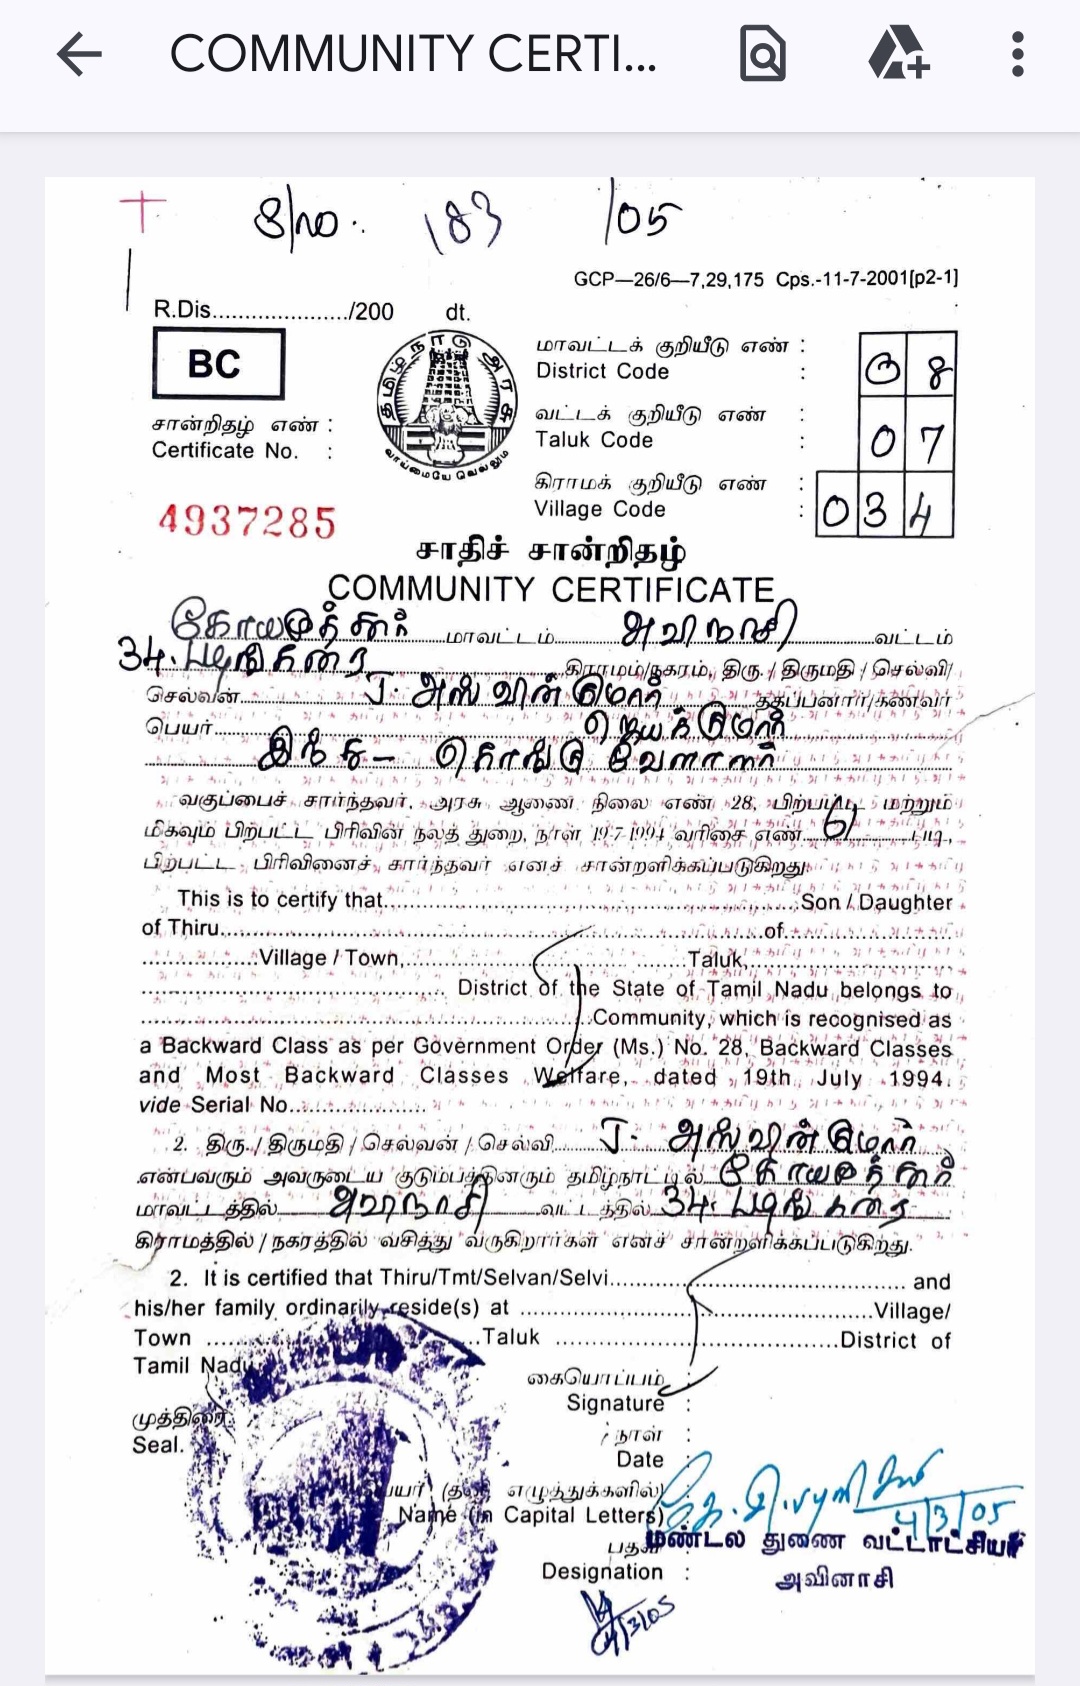 COMMUNITY CERTI...
S/no. 183 /05
GCP—26/6—7,29,175 Cps.-11-7-2001[p2-1]
R.Dis...................../200 dt.
BC
தமிழ்நாடு அரசு
வாய்மையே வெல்லும்
மாவட்டக் குறியீடு எண் :
District Code : 38
வட்டக் குறியீடு எண் :
Taluk Code : 07
கிராமக் குறியீடு எண் :
Village Code : 034
சான்றிதழ் எண் :
Certificate No. :
4937285
சாதிச் சான்றிதழ்
COMMUNITY CERTIFICATE
கோயமுத்தூர் மாவட்டம் அவிநாசி வட்டம்
34. கிராமம்/நகரம், திரு. / திருமதி / செல்வி/
செல்வன் J. அஸ்வின்குமார் தகப்பனார்/கணவர்
பெயர் ஜெயக்குமார்
இந்து - கொங்கு வேளாளர்
வகுப்பைச் சார்ந்தவர். அரசு ஆணை நிலை எண் 28, பிற்பட்ட மற்றும்
மிகவும் பிற்பட்ட பிரிவின் நலத் துறை, நாள் 19.7.1994 வரிசை எண் படி,
பிற்பட்ட பிரிவினைச் சார்ந்தவர் எனச் சான்றளிக்கப்படுகிறது.
This is to certify that............................................................Son / Daughter
of Thiru............................................................of...............................
.................Village / Town,........................................Taluk,............................
............................................. District of the State of Tamil Nadu belongs to
............................................................Community, which is recognised as
a Backward Class as per Government Order (Ms.) No. 28, Backward Classes
and Most Backward Classes Welfare, dated 19th July 1994.
vide Serial No.....................
2. திரு. / திருமதி / செல்வன் / செல்வி J. அஸ்வின்குமார்
என்பவரும் அவருடைய குடும்பத்தினரும் தமிழ்நாட்டில் கோயமுத்தூர்
மாவட்டத்தில் அவிநாசி வட்டத்தில் 34.
கிராமத்தில் / நகரத்தில் வசித்து வருகிறார்கள் எனச் சான்றளிக்கப்படுகிறது.
2. It is certified that Thiru/Tmt/Selvan/Selvi........................................ and
his/her family ordinarily reside(s) at ................................................Village/
Town ........................................Taluk ........................................District of
Tamil Nadu
கையொப்பம் :
Signature :
முத்திரை
Seal.
நாள் :
Date :
பெயர் (தலை எழுத்துக்களில்)
Name (in Capital Letters)
4/3/05
மண்டல துணை வட்டாட்சியர்
பதவி
Designation :
அவினாசி
4/3/05